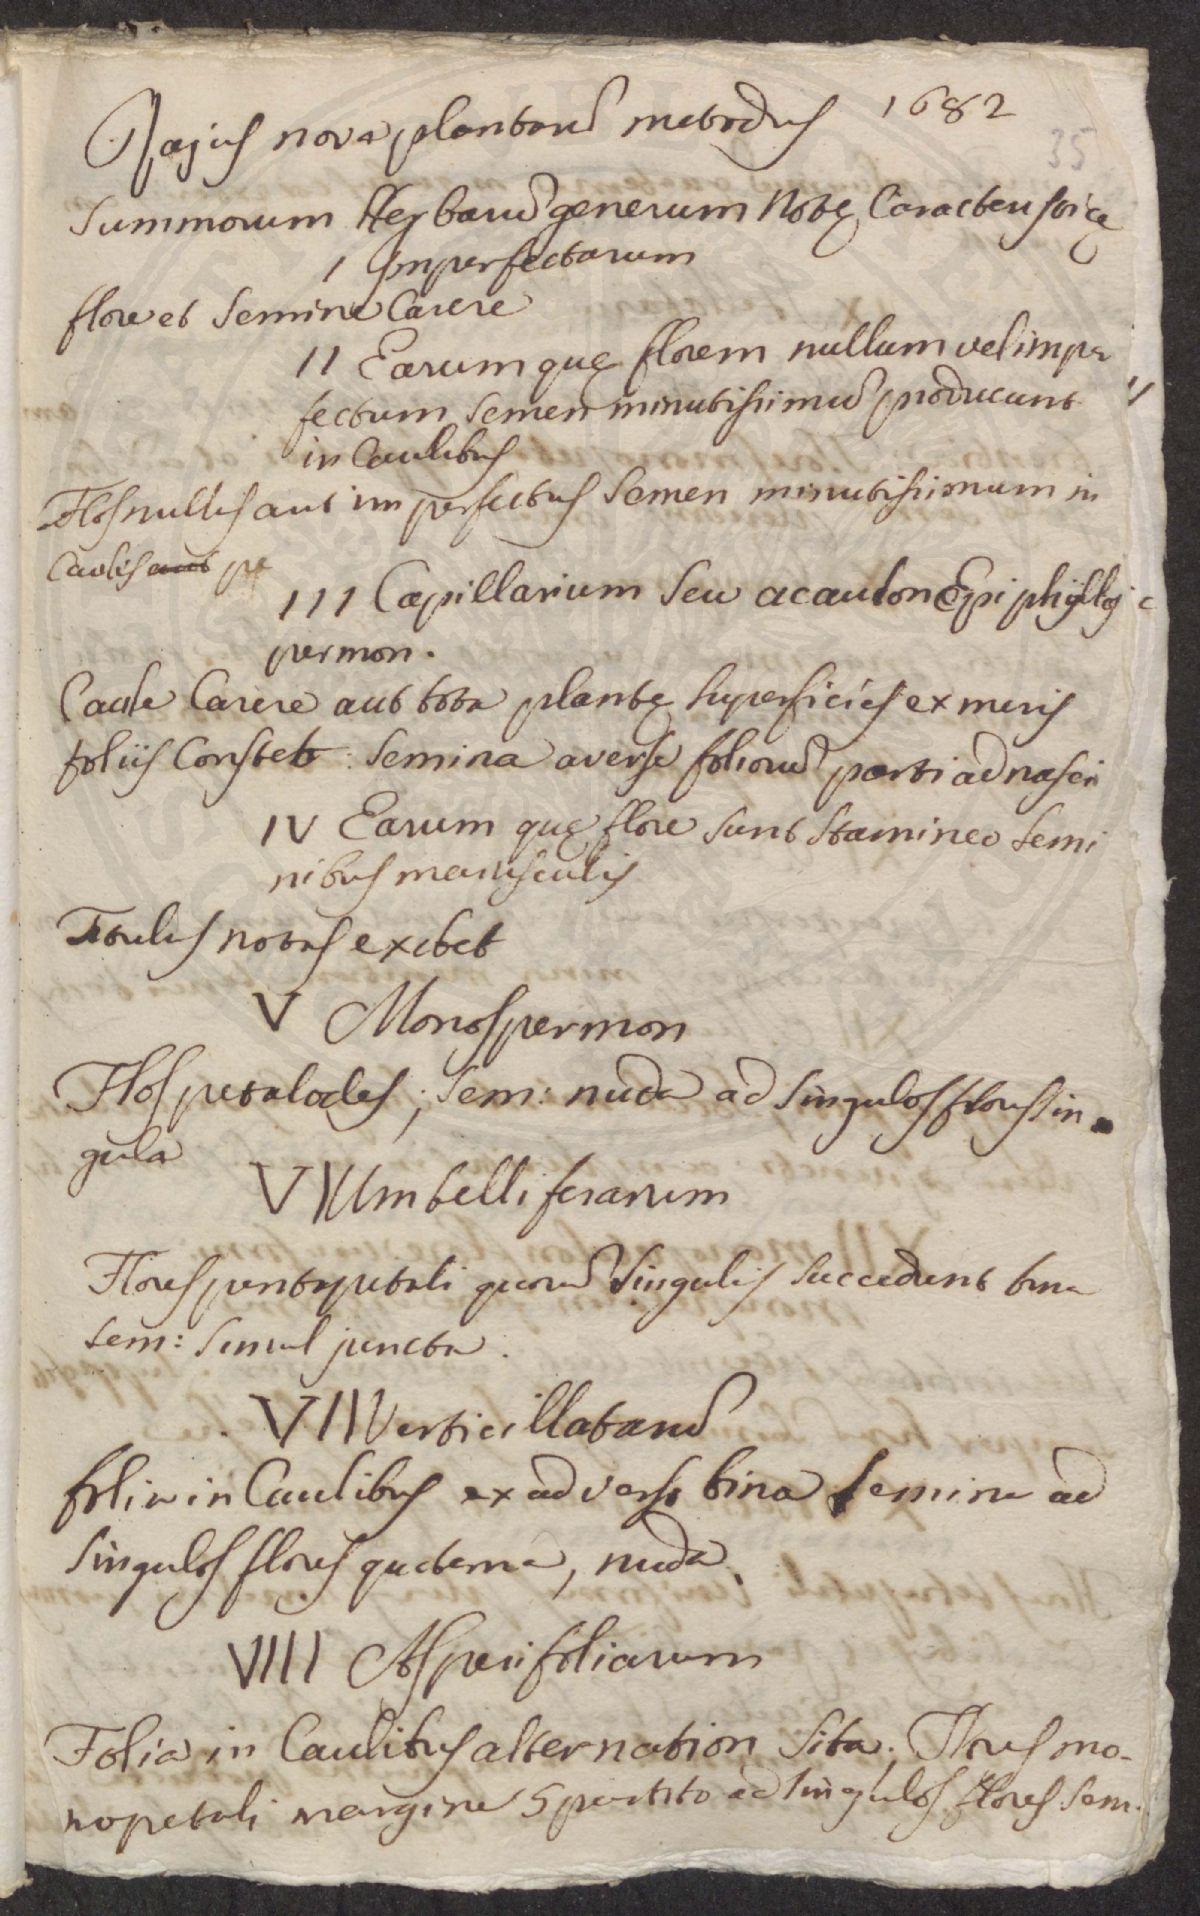 Rajus nova plantarũ metodus 1682
35
Summorum Herbarũ generum Notę Caracteristicę
I Imperfectarum
flore et semine Carere
II Earum quę florem nullum vel impe
fectum semen minutissimũ producunt
in Caulibus
Flos nullus aut imperfectus Semen minutissimum in
Caulis aut pe
III Capillarium seu acaulon Epiphyllo
permon.
Caule Carere aut tota plantę superficies ex meris
foliis Constet: Semina aversę foliorũ parti adnasci
IV Earum quę flore sunt Stamineo semi
nibus majusculis
Titulus notas exibet
V Monospermon
Flos petalodes; sem: nuda ad singulos flores sin
gula
VI Umbelliferarum
Flores pentapetali quorũ singulis succedunt bina
sem: simul juncta.
VII Verticillatarũ
folia in Caulibus ex adverso bina semina ad
singulos flores quaterna, nuda.
VIII Asperifoliarum
Folia in Caulibus alternation sita. Flores mo-
nopetali margine 5 partito ad singulos flores sem.